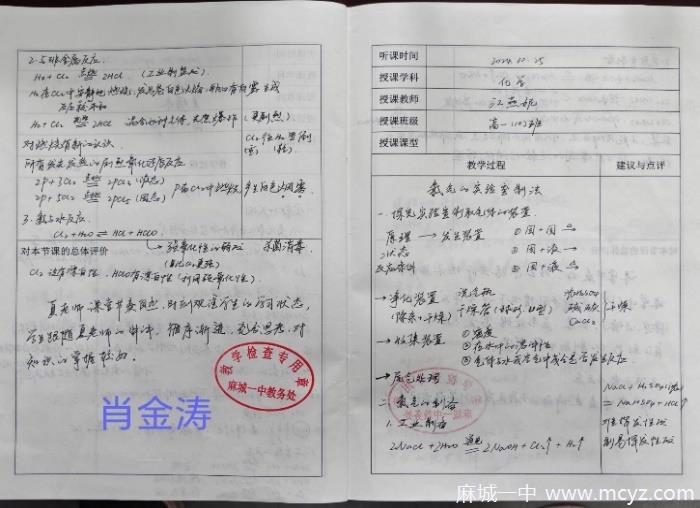 2. 与非金属反应
H₂ + Cl₂ 点燃 2HCl (工业制盐酸)
H₂在Cl₂中安静地燃烧,发出苍白色火焰,瓶口有白雾生成
H₂ + Cl₂ 光照 2HCl 混合后光照,发生爆炸
对燃烧有新的认识
所有发光发热的剧烈氧化还原反应
2P + 3Cl₂ 点燃 2PCl₃ (液态)
2P + 5Cl₂ 点燃 2PCl₅ (固态)
P在Cl₂中燃烧,产生白色烟雾
3. 氯与水反应
Cl₂ + H₂O ⇌ HCl + HClO
对本节课的总体评价
强氧化性的弱酸
杀菌消毒
Cl₂ 没有漂白性,HClO有漂白性(利用强氧化性)
夏老师课堂节奏,时刻观察学生的学习状态,
学生跟随夏老师的讲评,循序渐进,充分思考,对
知识的掌握较好。
教学检查专用章
麻城一中教务处
肖金涛
听课时间 2024.12.25
授课学科 化学
授课教师
授课班级 高一(10)班
授课课型
教学过程 建议与点评
氯气的实验室制法
一、探究实验室制取气体的装置
原理 → 发生装置 ① 固+固 △
状态 ② 固+液
反应条件 ③ 固+液 △
→ 净化装置 洗气瓶 浓H₂SO₄
(除杂+干燥) 干燥管 碱石灰 干燥
CaCl₂
→ 收集装置 ① 密度
② 在水中的溶解性
③ 气体与水或空气中成分是否发生反应
→ 尾气处理
二、氯气的制备
1. 工业制备
2NaCl + 2H₂O 通电 2NaOH + Cl₂↑ + H₂↑
NaCl + H₂SO₄(浓)
= NaHSO₄ + HCl↑
难挥发性酸
制易挥发性酸
麻城一中 www.mcyz.com